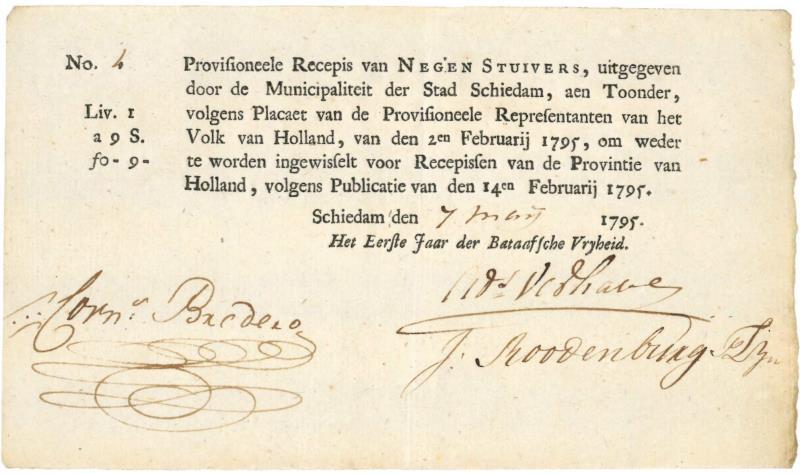 No. 4 Provisioneele Recepis van NEGEN STUIVERS, uitgegeven
door de Municipaliteit der Stad Schiedam, aen Toonder,
Liv. 1 volgens Placaet van de Provisioneele Representanten van het
a 9 S. Volk van Holland, van den 2en Februarij 1795, om weder
fo - 9 - te worden ingewisselt voor Recepissen van de Provintie van
Holland, volgens Publicatie van den 14en Februarij 1795.
Schiedam den 7 maij 1795.
Het Eerste Jaar der Bataafsche Vryheid.
Corns. Bredero
J. Roodenburg